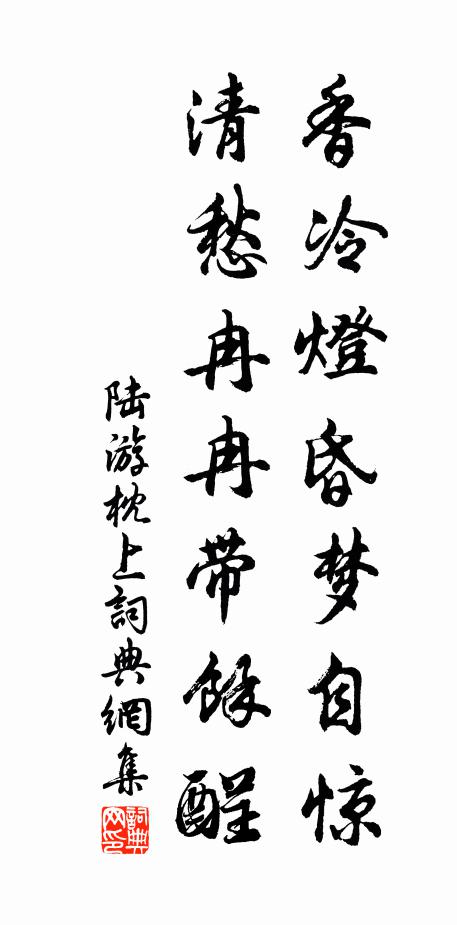 香冷燈昏梦自惊
清愁冉冉带餘酲
陆游枕上詞典網集
詞典网印